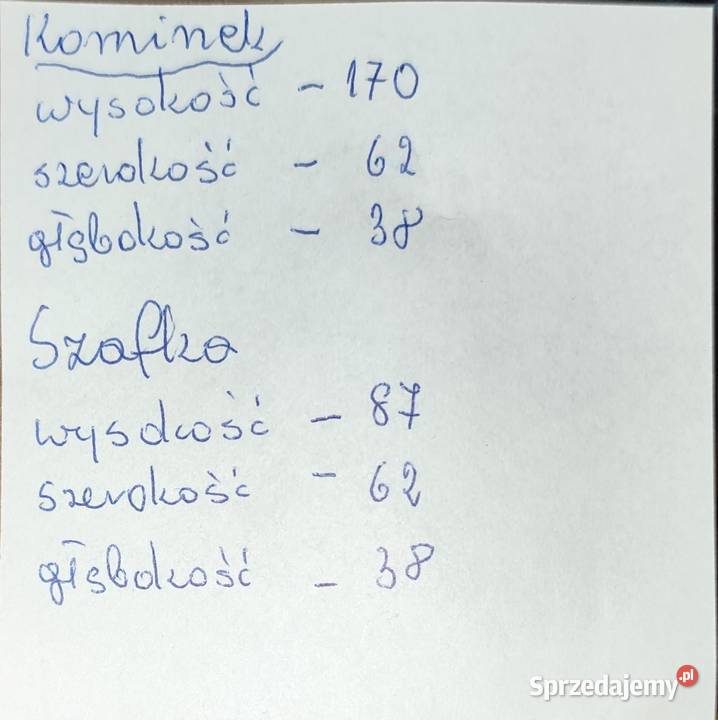 Kominek
wysokość – 170
szerokość – 62
głębokość – 38
Szafka
wysokość – 87
szerokość – 62
głębokość – 38
Sprzedajemy.pl